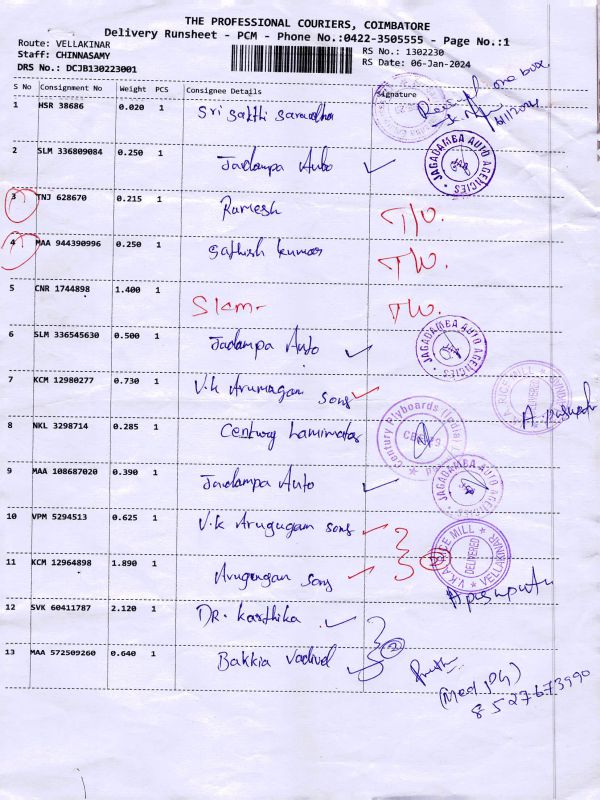 THE PROFESSIONAL COURIERS, COIMBATORE
Delivery Runsheet - PCM - Phone No.:0422-3505555 - Page No.:1
Route: VELLAKINAR
RS No.: 1302230
Staff: CHINNASAMY
RS Date: 06-Jan-2024
DRS No.: DCJB130223001
S No Consignment No Weight PCS Consignee Details Signature
1 HSR 38686 0.020 1 Sri Sakthi
one box
2 SLM 336809084 0.250 1 Jadampa Auto
JAGADAMBA AUTO AGENCIES
3 TNJ 628670 0.215 1 Ramesh T/W.
4 MAA 944390996 0.250 1 Sathish kumar TW.
5 CNR 1744898 1.400 1 TW.
6 SLM 336545630 0.500 1 Jadampa Auto
JAGADAMBA AUTO AGENCIES
7 KCM 12980277 0.730 1 V.k Arumugan sons
RICE MILL
8 NKL 3298714 0.285 1 Century Lamimates
Century Plyboards (India)
9 MAA 108687020 0.390 1 Jadampa Auto
JAGADAMBA AUTO AGENCIES
10 VPM 5294513 0.625 1 V.k Arugugam sons
V.K.A RICE MILL DELIVERED VELLAKINAR
11 KCM 12964898 1.890 1 Arugugan sons
12 SVK 60411787 2.120 1 DR. karthika
2
13 MAA 572509260 0.640 1 Bakkia Vadivel
8527673990